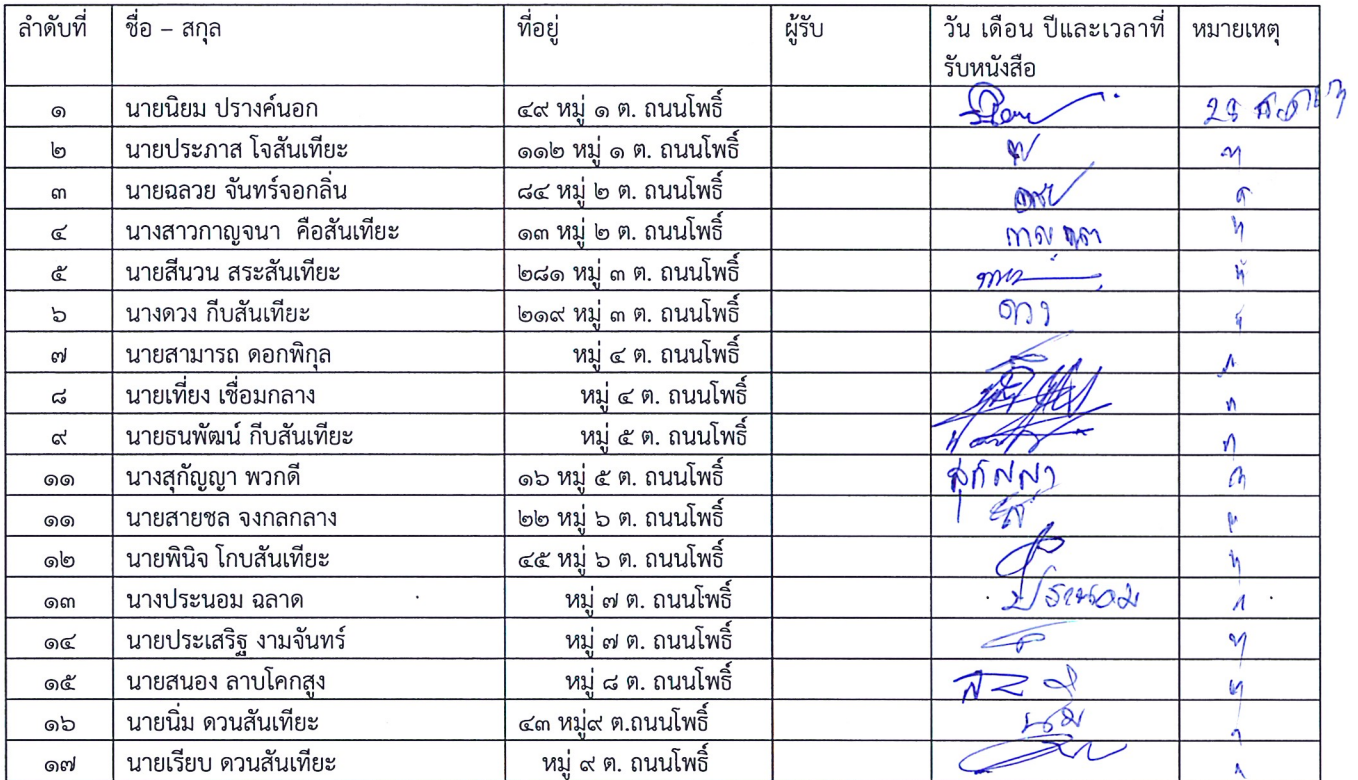 ลำดับที่ ชื่อ – สกุล ที่อยู่ ผู้รับ วัน เดือน ปีและเวลาที่ หมายเหตุ
รับหนังสือ
๑ นายนิยม ปรางค์นอก ๔๙ หมู่ ๑ ต. ถนนโพธิ์
๒ นายประภาส โจสันเทียะ ๑๑๒ หมู่ ๑ ต. ถนนโพธิ์
๓ นายฉลวย จันทร์จอกลิ่น ๘๔ หมู่ ๒ ต. ถนนโพธิ์
๔ นางสาวกาญจนา คือสันเทียะ ๑๓ หมู่ ๒ ต. ถนนโพธิ์
๕ นายสีนวน สระสันเทียะ ๒๘๑ หมู่ ๓ ต. ถนนโพธิ์
๖ นางดวง กีบสันเทียะ ๒๑๙ หมู่ ๓ ต. ถนนโพธิ์ ดวง
๗ นายสามารถ ดอกพิกุล หมู่ ๔ ต. ถนนโพธิ์
๘ นายเที่ยง เชื่อมกลาง หมู่ ๔ ต. ถนนโพธิ์
๙ นายธนพัฒน์ กีบสันเทียะ หมู่ ๕ ต. ถนนโพธิ์
๑๑ นางสุกัญญา พวกดี ๑๖ หมู่ ๕ ต. ถนนโพธิ์ สุกัญญา
๑๑ นายสายชล จงกลกลาง ๒๒ หมู่ ๖ ต. ถนนโพธิ์
๑๒ นายพินิจ โกบสันเทียะ ๔๕ หมู่ ๖ ต. ถนนโพธิ์
๑๓ นางประนอม ฉลาด หมู่ ๗ ต. ถนนโพธิ์ ประนอม
๑๔ นายประเสริฐ งามจันทร์ หมู่ ๗ ต. ถนนโพธิ์
๑๕ นายสนอง ลาบโคกสูง หมู่ ๘ ต. ถนนโพธิ์
๑๖ นายนิ่ม ดวนสันเทียะ ๔๓ หมู่๙ ต.ถนนโพธิ์
๑๗ นายเรียบ ดวนสันเทียะ หมู่ ๙ ต. ถนนโพธิ์